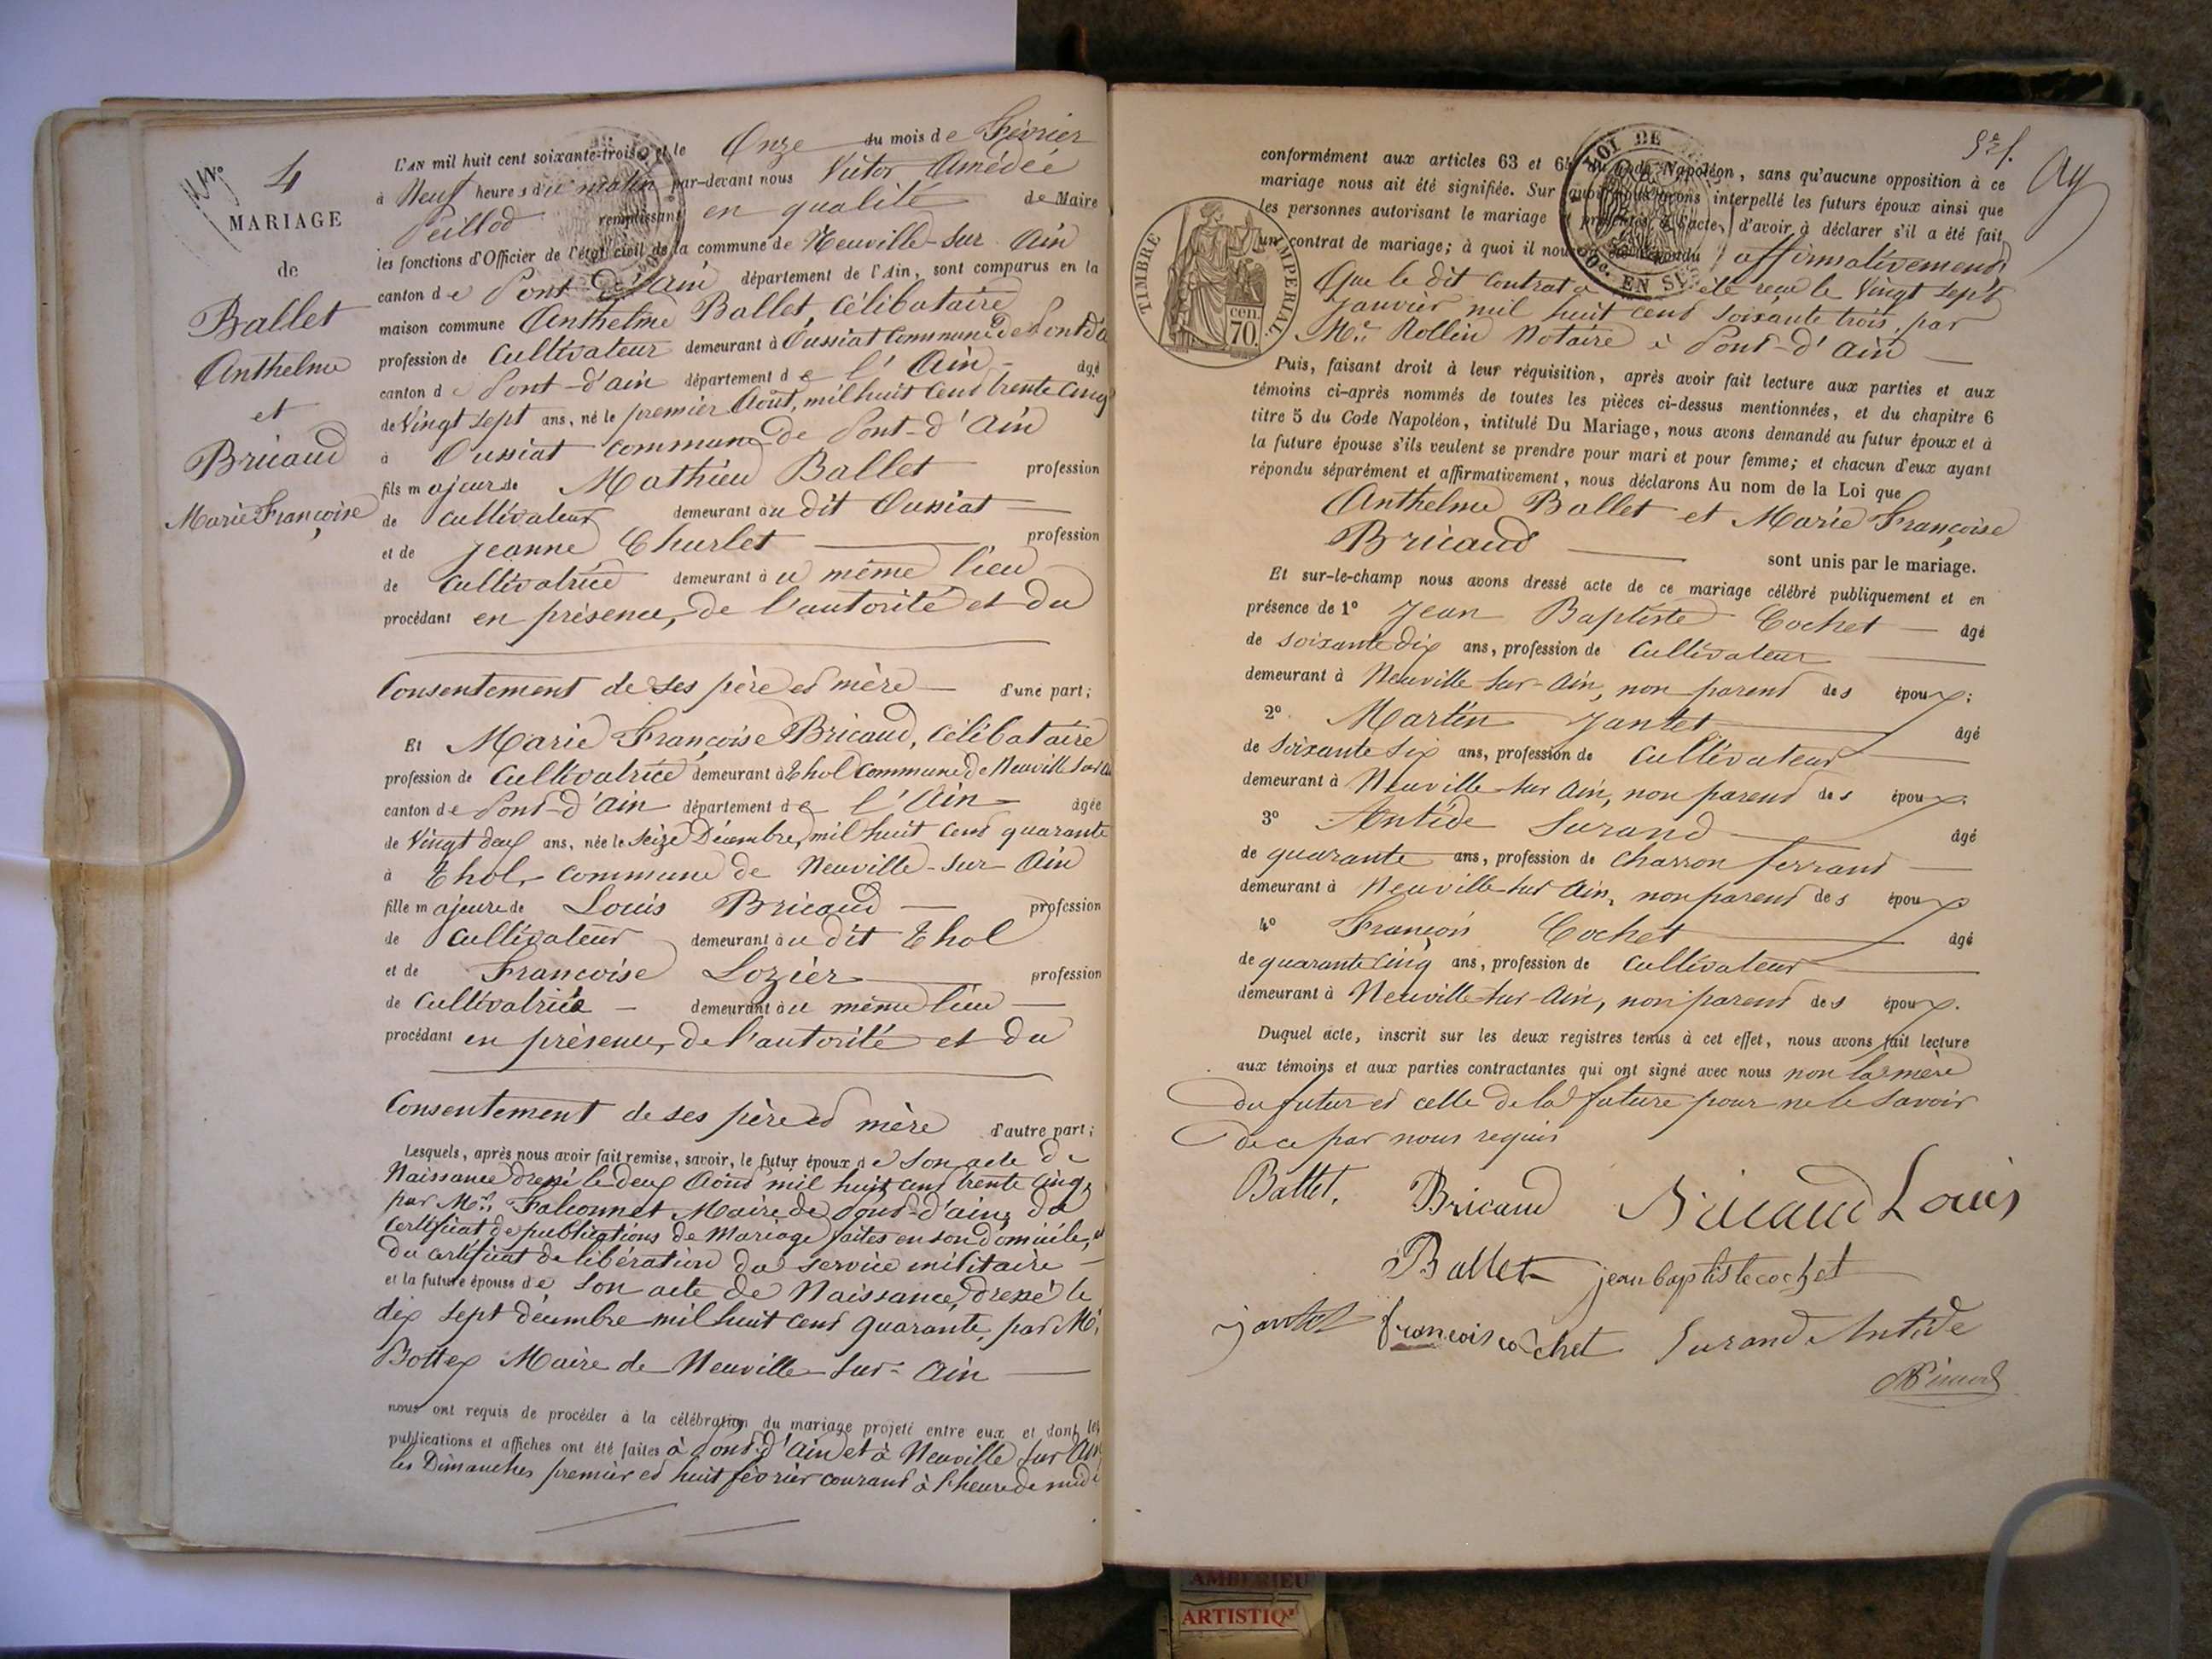 N.º 4
MARIAGE
de
Ballet
Anthelme
et
Bricaud
Marie Françoise
L'AN mil huit cent soixante-trois et le Onze du mois de Février
à Neuf heures du matin par-devant nous Victor Amédée
Peillod remplissant en qualité de Maire
les fonctions d'Officier de l'état civil de la commune de Neuville-sur Ain
canton de Pont-d'Ain département de l'Ain, sont comparus en la
maison commune Anthelme Ballet, célibataire
profession de Cultivateur demeurant à Oussiat Commune de Pont d'a
canton de Pont-d'ain département de l'Ain âgé
de Vingt sept ans, né le premier Août, mil huit cent trente cinq
à Oussiat commune de Pont-d'Ain
fils majeur de Mathieu Ballet profession
de cultivateur demeurant au dit Oussiat
et de Jeanne Churlet profession
de Cultivatrice demeurant au même lieu
procédant en présence, de l'autorité et du
Consentement de ses père et mère d'une part;
Et Marie Françoise Bricaud, Célibataire
profession de Cultivatrice demeurant à Thol Commune de Neuville sur
canton de Pont-d'ain département de l'Ain âgée
de Vingt deux ans, née le seize Décembre, mil huit cent quarante
à Thol, commune de Neuville-sur Ain
fille majeure de Louis Bricaud profession
de Cultivateur demeurant au dit Thol
et de Françoise Lozier profession
de Cultivatrice demeurant au même lieu
procédant en présence, de l'autorité et du
Consentement de ses père et mère d'autre part;
Lesquels, après nous avoir fait remise, savoir, le futur époux de son acte de
Naissance dressé le deux Août mil huit cent trente cinq,
par Mr. Falconnet Maire de Pont-d'ain, du
Certificat de publications de Mariage faites en son domicile, et
du certificat de libération du service militaire
et la future épouse de son acte de Naissance, dressé le
dix sept décembre mil huit cent quarante, par Mr.
Bottex Maire de Neuville sur-Ain
nous ont requis de procéder à la célébration du mariage projeté entre eux et dont les
publications et affiches ont été faites à Pont-d'Ain et à Neuville sur Ain
les Dimanches premier et huit février courant à l'heure de midi
conformément aux articles 63 et 64 du Code Napoléon, sans qu'aucune opposition à ce
mariage nous ait été signifiée. Sur quoi nous avons interpellé les futurs époux ainsi que
les personnes autorisant le mariage et présentes à l'acte, d'avoir à déclarer s'il a été fait
un contrat de mariage; à quoi il nous a été répondu affirmativement
Que le dit Contrat a été reçu le Vingt sept
Janvier mil huit cent soixante trois, par
Me. Rollin Notaire à Pont-d'Ain
TIMBRE IMPERIAL
cen. 70.
Puis, faisant droit à leur réquisition, après avoir fait lecture aux parties et aux
témoins ci-après nommés de toutes les pièces ci-dessus mentionnées, et du chapitre 6
titre 5 du Code Napoléon, intitulé Du Mariage, nous avons demandé au futur époux et à
la future épouse s'ils veulent se prendre pour mari et pour femme; et chacun d'eux ayant
répondu séparément et affirmativement, nous déclarons Au nom de la Loi que
Anthelme Ballet et Marie Françoise
Bricaud sont unis par le mariage.
Et sur-le-champ nous avons dressé acte de ce mariage célébré publiquement et en
présence de 1º Jean Baptiste Cochet âgé
de soixante dix ans, profession de Cultivateur
demeurant à Neuville sur-Ain, non parent des époux;
2º Martin Jantet âgé
de soixante six ans, profession de Cultivateur
demeurant à Neuville sur Ain, non parent des époux.
3º Antide Surand âgé
de quarante ans, profession de Charron ferrant
demeurant à Neuville sur Ain, non parent des époux
4º François Cochet âgé
de quarante cinq ans, profession de Cultivateur
demeurant à Neuville sur-Ain, non parent des époux.
Duquel acte, inscrit sur les deux registres tenus à cet effet, nous avons fait lecture
aux témoins et aux parties contractantes qui ont signé avec nous non la mère
du futur et celle de la future pour ne le savoir
de ce par nous requis
Ballet. Bricaud Bricaud Louis
Ballet jean baptiste cochet
jantet francois cochet Surand Antide
AMBERIEU
ARTISTIQ